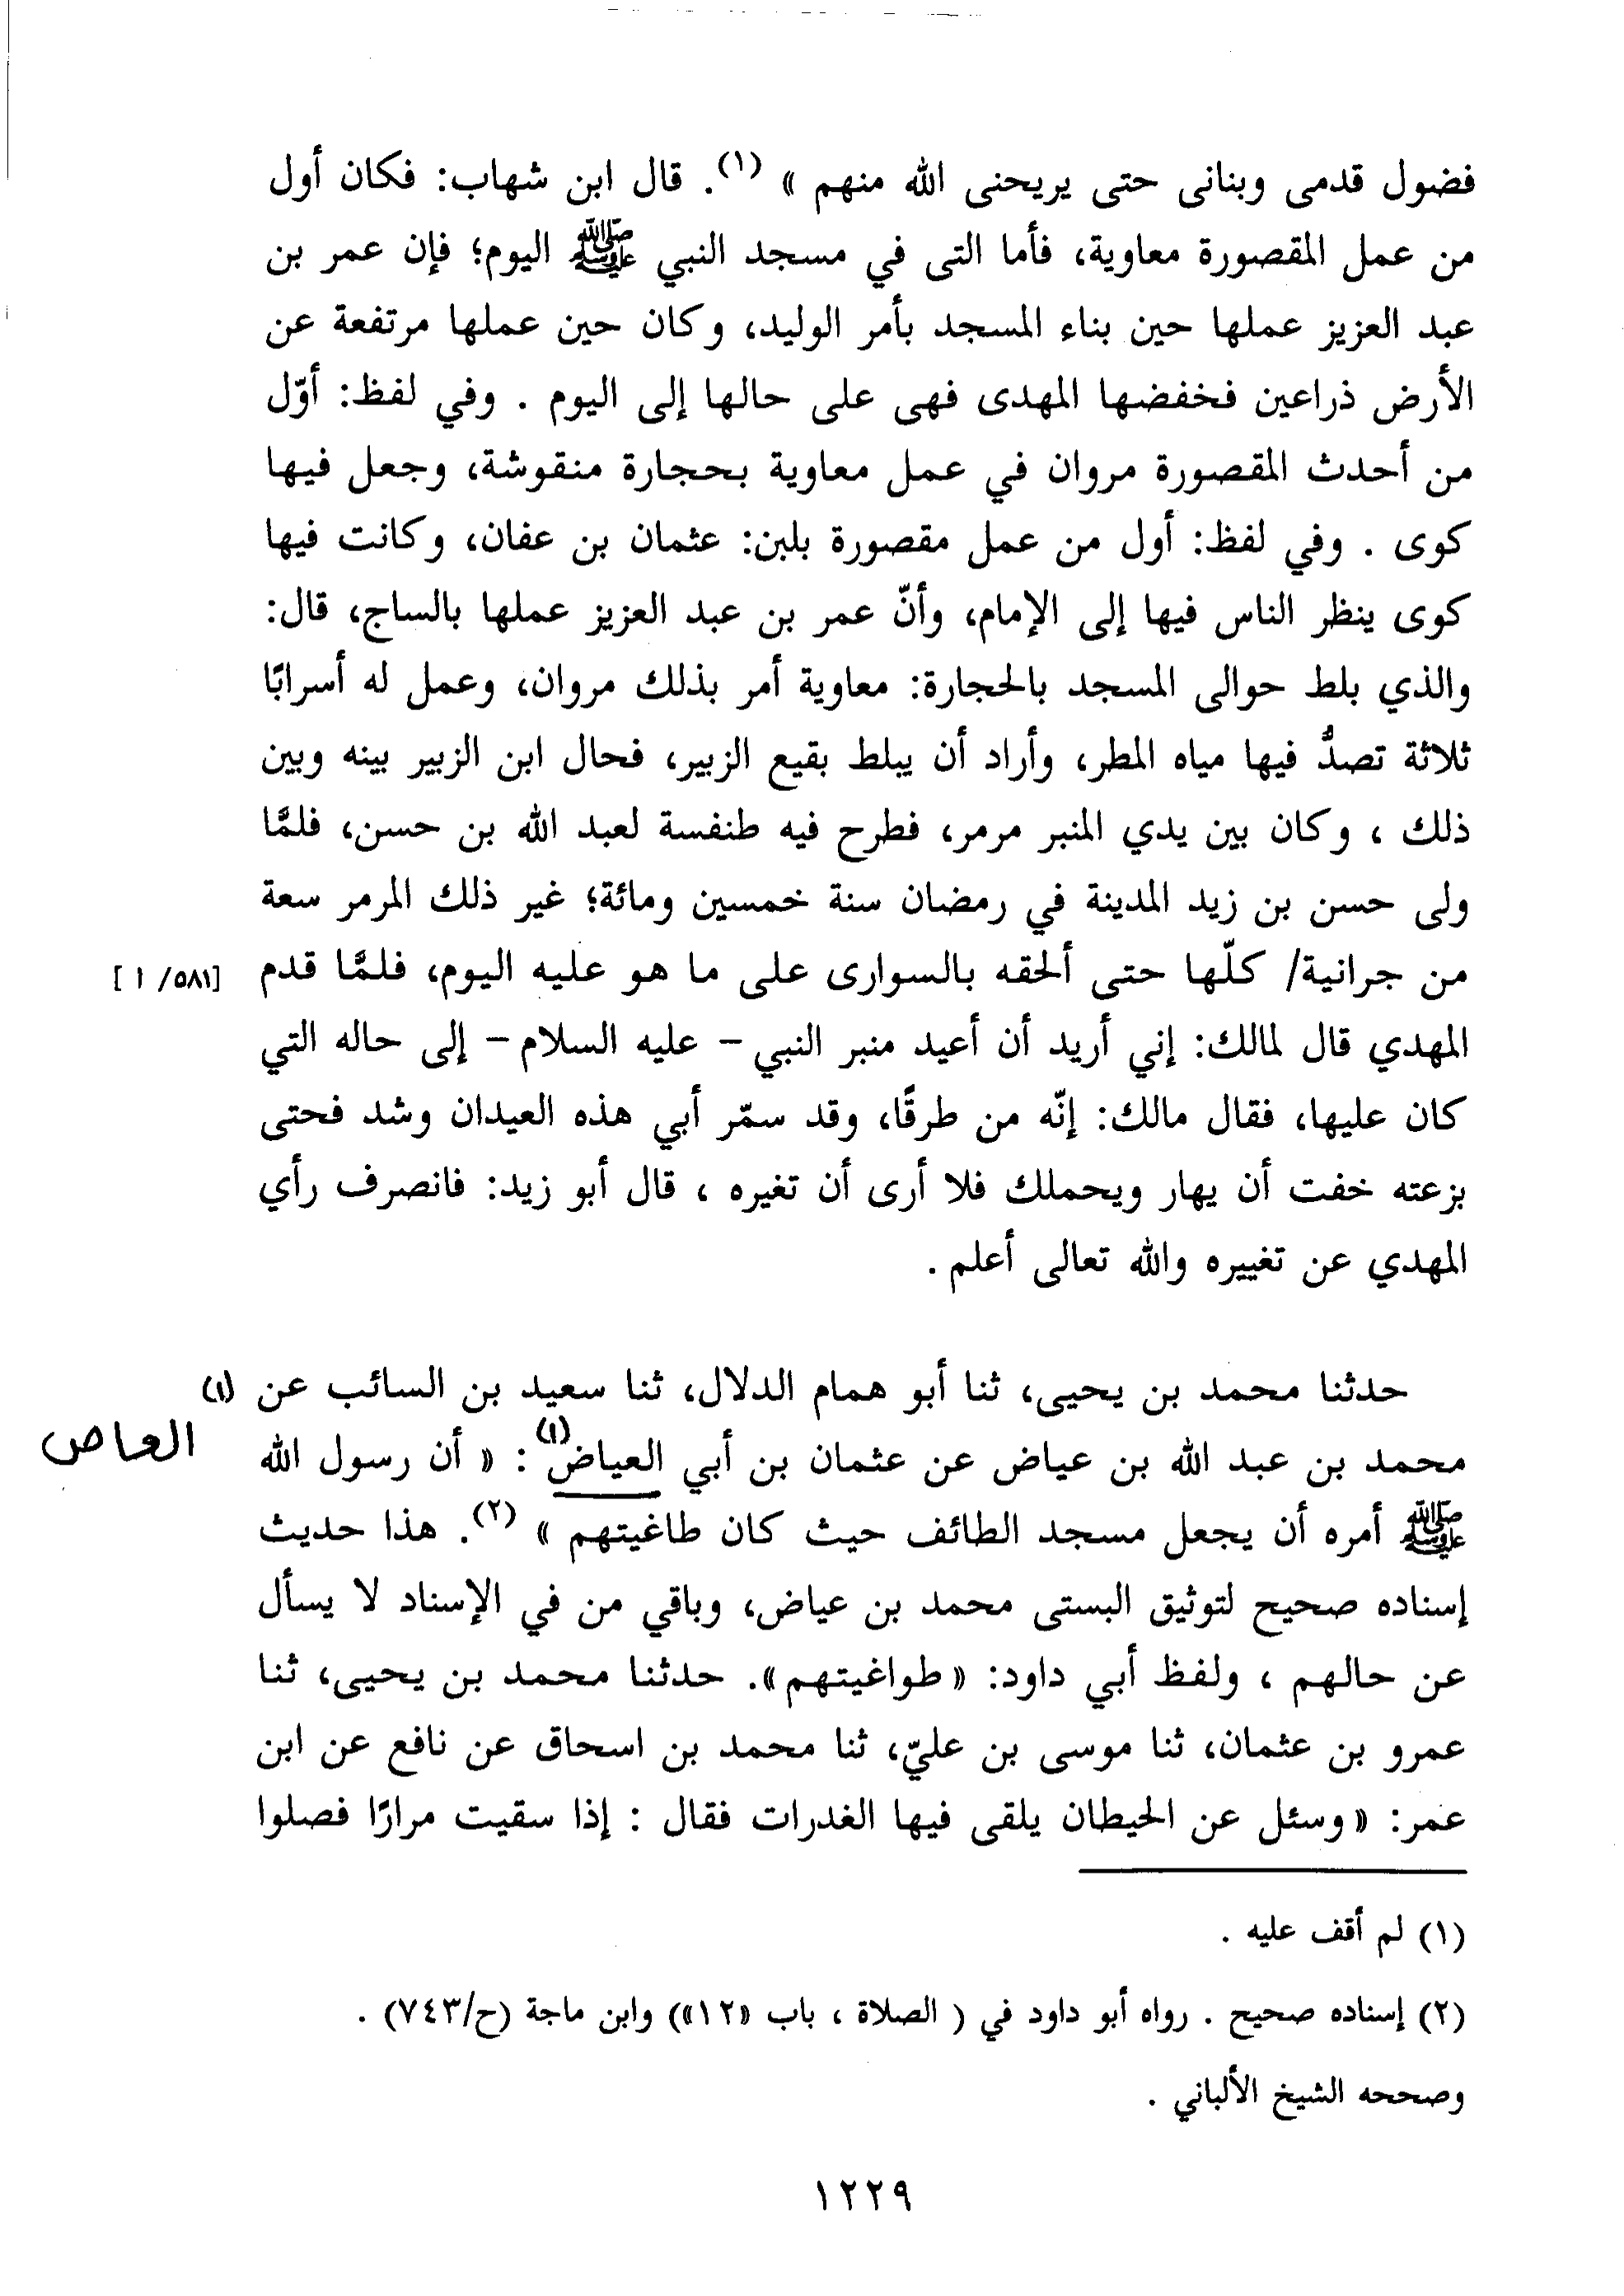 فضول قدمى وبنانى حتى يريحنى الله منهم » (١). قال ابن شهاب: فكان أول
من عمل المقصورة معاوية، فأما التى في مسجد النبي ﷺ اليوم؛ فإن عمر بن
عبد العزيز عملها حين بناء المسجد بأمر الوليد، وكان حين عملها مرتفعة عن
الأرض ذراعين فخفضها المهدى فهى على حالها إلى اليوم . وفي لفظ: أوّل
من أحدث المقصورة مروان في عمل معاوية بحجارة منقوشة، وجعل فيها
كوى . وفي لفظ: أول من عمل مقصورة بلبن: عثمان بن عفان، وكانت فيها
كوى ينظر الناس فيها إلى الإمام، وأنّ عمر بن عبد العزيز عملها بالساج، قال:
والذي بلط حوالى المسجد بالحجارة: معاوية أمر بذلك مروان، وعمل له أسرابًا
ثلاثة تصدُّ فيها مياه المطر، وأراد أن يبلط بقيع الزبير، فحال ابن الزبير بينه وبين
ذلك ، وكان بين يدي المنبر مرمر، فطرح فيه طنفسة لعبد الله بن حسن، فلمَّا
ولى حسن بن زيد المدينة في رمضان سنة خمسين ومائة؛ غير ذلك المرمر سعة
من جرانية/ كلّها حتى ألحقه بالسوارى على ما هو عليه اليوم، فلمَّا قدم [٥٨١/ ا ]
المهدي قال لمالك: إني أريد أن أعيد منبر النبي - عليه السلام - إلى حاله التي
كان عليها، فقال مالك: إنّه من طرفًا، وقد سمّر أبي هذه العيدان وشد فحتى
بزعته خفت أن يهار ويحملك فلا أرى أن تغيره ، قال أبو زيد: فانصرف رأي
المهدي عن تغييره والله تعالى أعلم .
حدثنا محمد بن يحيى، ثنا أبو همام الدلال، ثنا سعيد بن السائب عن (١)
العاص
محمد بن عبد الله بن عياض عن عثمان بن أبي العياض (١) : « أن رسول الله
ﷺ أمره أن يجعل مسجد الطائف حيث كان طاغيتهم » (٢). هذا حديث
إسناده صحيح لتوثيق البستى محمد بن عياض، وباقي من في الإسناد لا يسأل
عن حالهم ، ولفظ أبي داود: « طواغيتهم». حدثنا محمد بن يحيى، ثنا
عمرو بن عثمان، ثنا موسى بن عليّ، ثنا محمد بن اسحاق عن نافع عن ابن
عمر: « وسئل عن الحيطان يلقى فيها الغدرات فقال : إذا سقيت مرارًا فصلوا
(١) لم أقف عليه .
(٢) إسناده صحيح . رواه أبو داود في ( الصلاة ، باب «١٢») وابن ماجة (ح/٧٤٣) .
وصححه الشيخ الألباني .
١٢٢٩